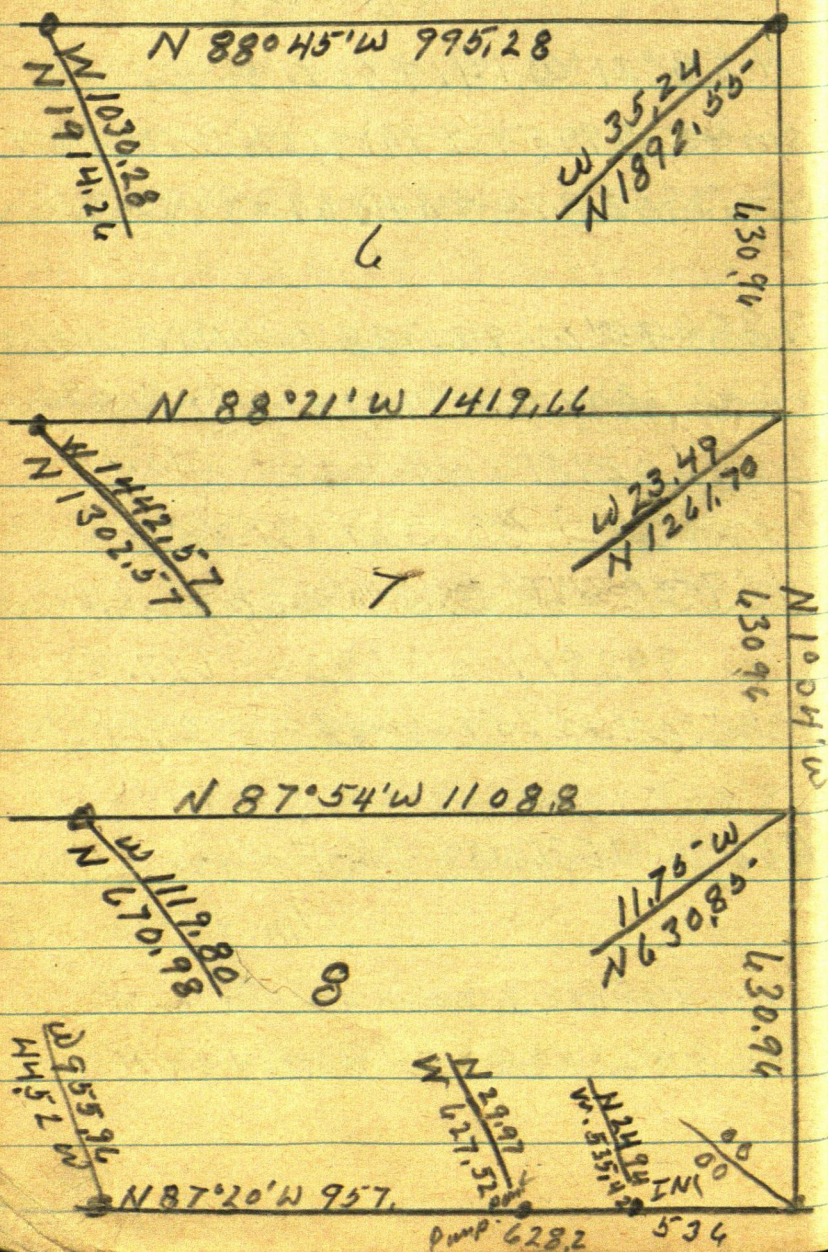 N 88°45'W 995.28
W 1030.28
N 1914.26
W 35.24
N 1892.55
630.96
6
N 88°21'W 1419.66
W 1442.57
N 1302.57
W 23.49
N 1261.70
630.96
N 1°04'W
7
N 87°54'W 1108.8
W 1119.80
N 670.98
11.75 W
N 630.85
630.96
8
W 955.96
44.52
N 29.97
W 627.52
N 24.94
W. 535.42
00
00
N 87°20'W 957.
Pump. 628.2
536